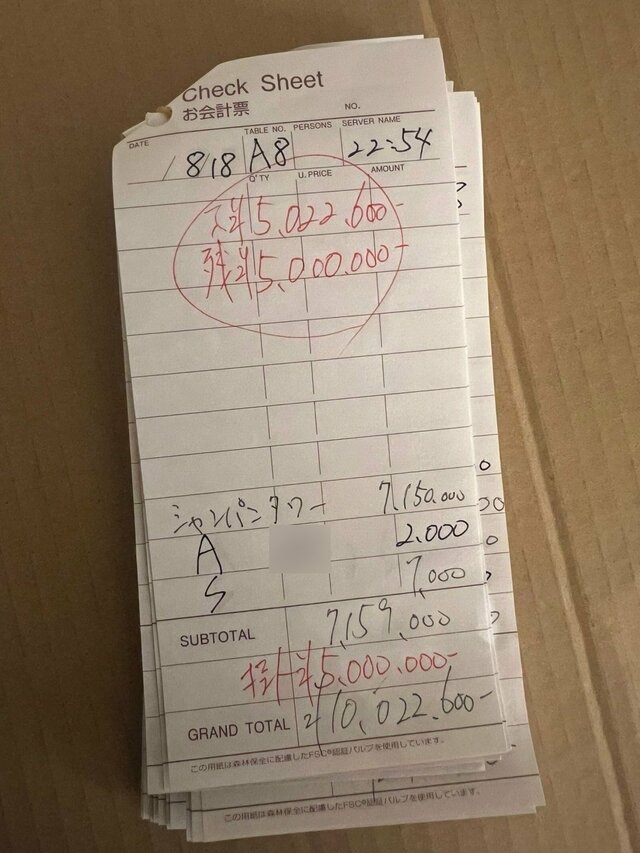 Check Sheet
お会計票
NO.
DATE TABLE NO. PERSONS SERVER NAME
8/18 A8 22:54
Q'TY U.PRICE AMOUNT
入¥5,022,600-
残¥5,000,000-
シャンパンタワー 7,150,000
A 2,000
S 7,000
SUBTOTAL 7,159,000
¥5,000,000-
GRAND TOTAL ¥10,022,600-
この用紙は森林保全に配慮したFSC®認証パルプを使用しています。
この用紙は森林保全に配慮したFSC®認証パルプを使用しています。